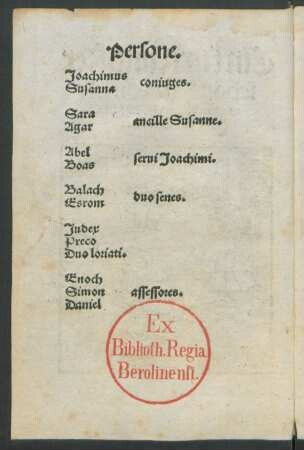 Persone.
Joachimus
Susanna coniuges.
Sara
Agar ancille Susanne.
Abel
Boas serui Joachimi.
Balach
Esrom duo senes.
Judex
Preco
Duo loriati.
Enoch
Simon assessores.
Daniel
Ex
Biblioth. Regia
Berolinensi.